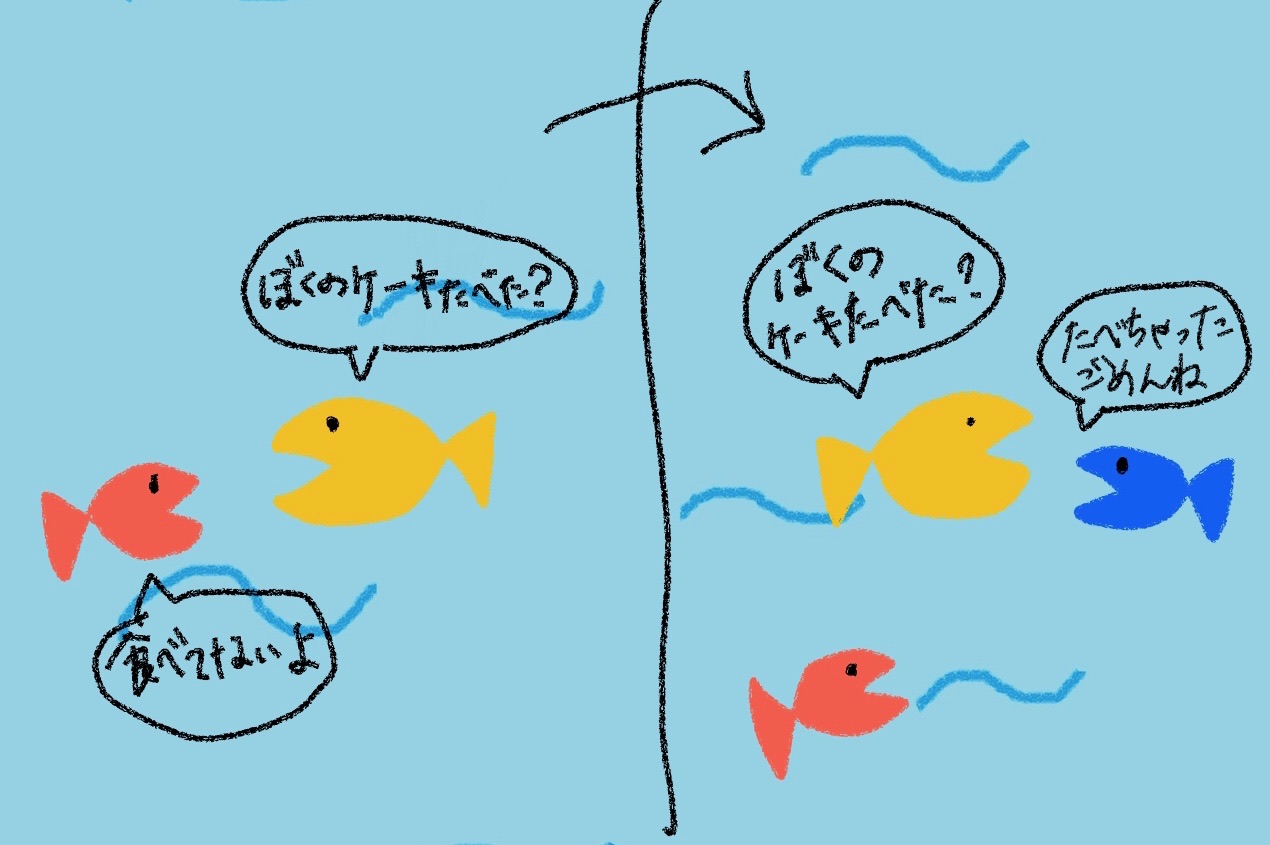 ぼくのケーキたべた?
食べてないよ
ぼくの
ケーキたべた?
たべちゃった
ごめんね